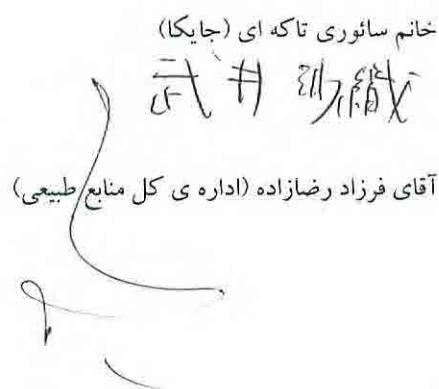 خانم سائوری تاکه ای (جایکا)
武井
آقای فرزاد رضازاده (اداره ی کل منابع طبیعی)